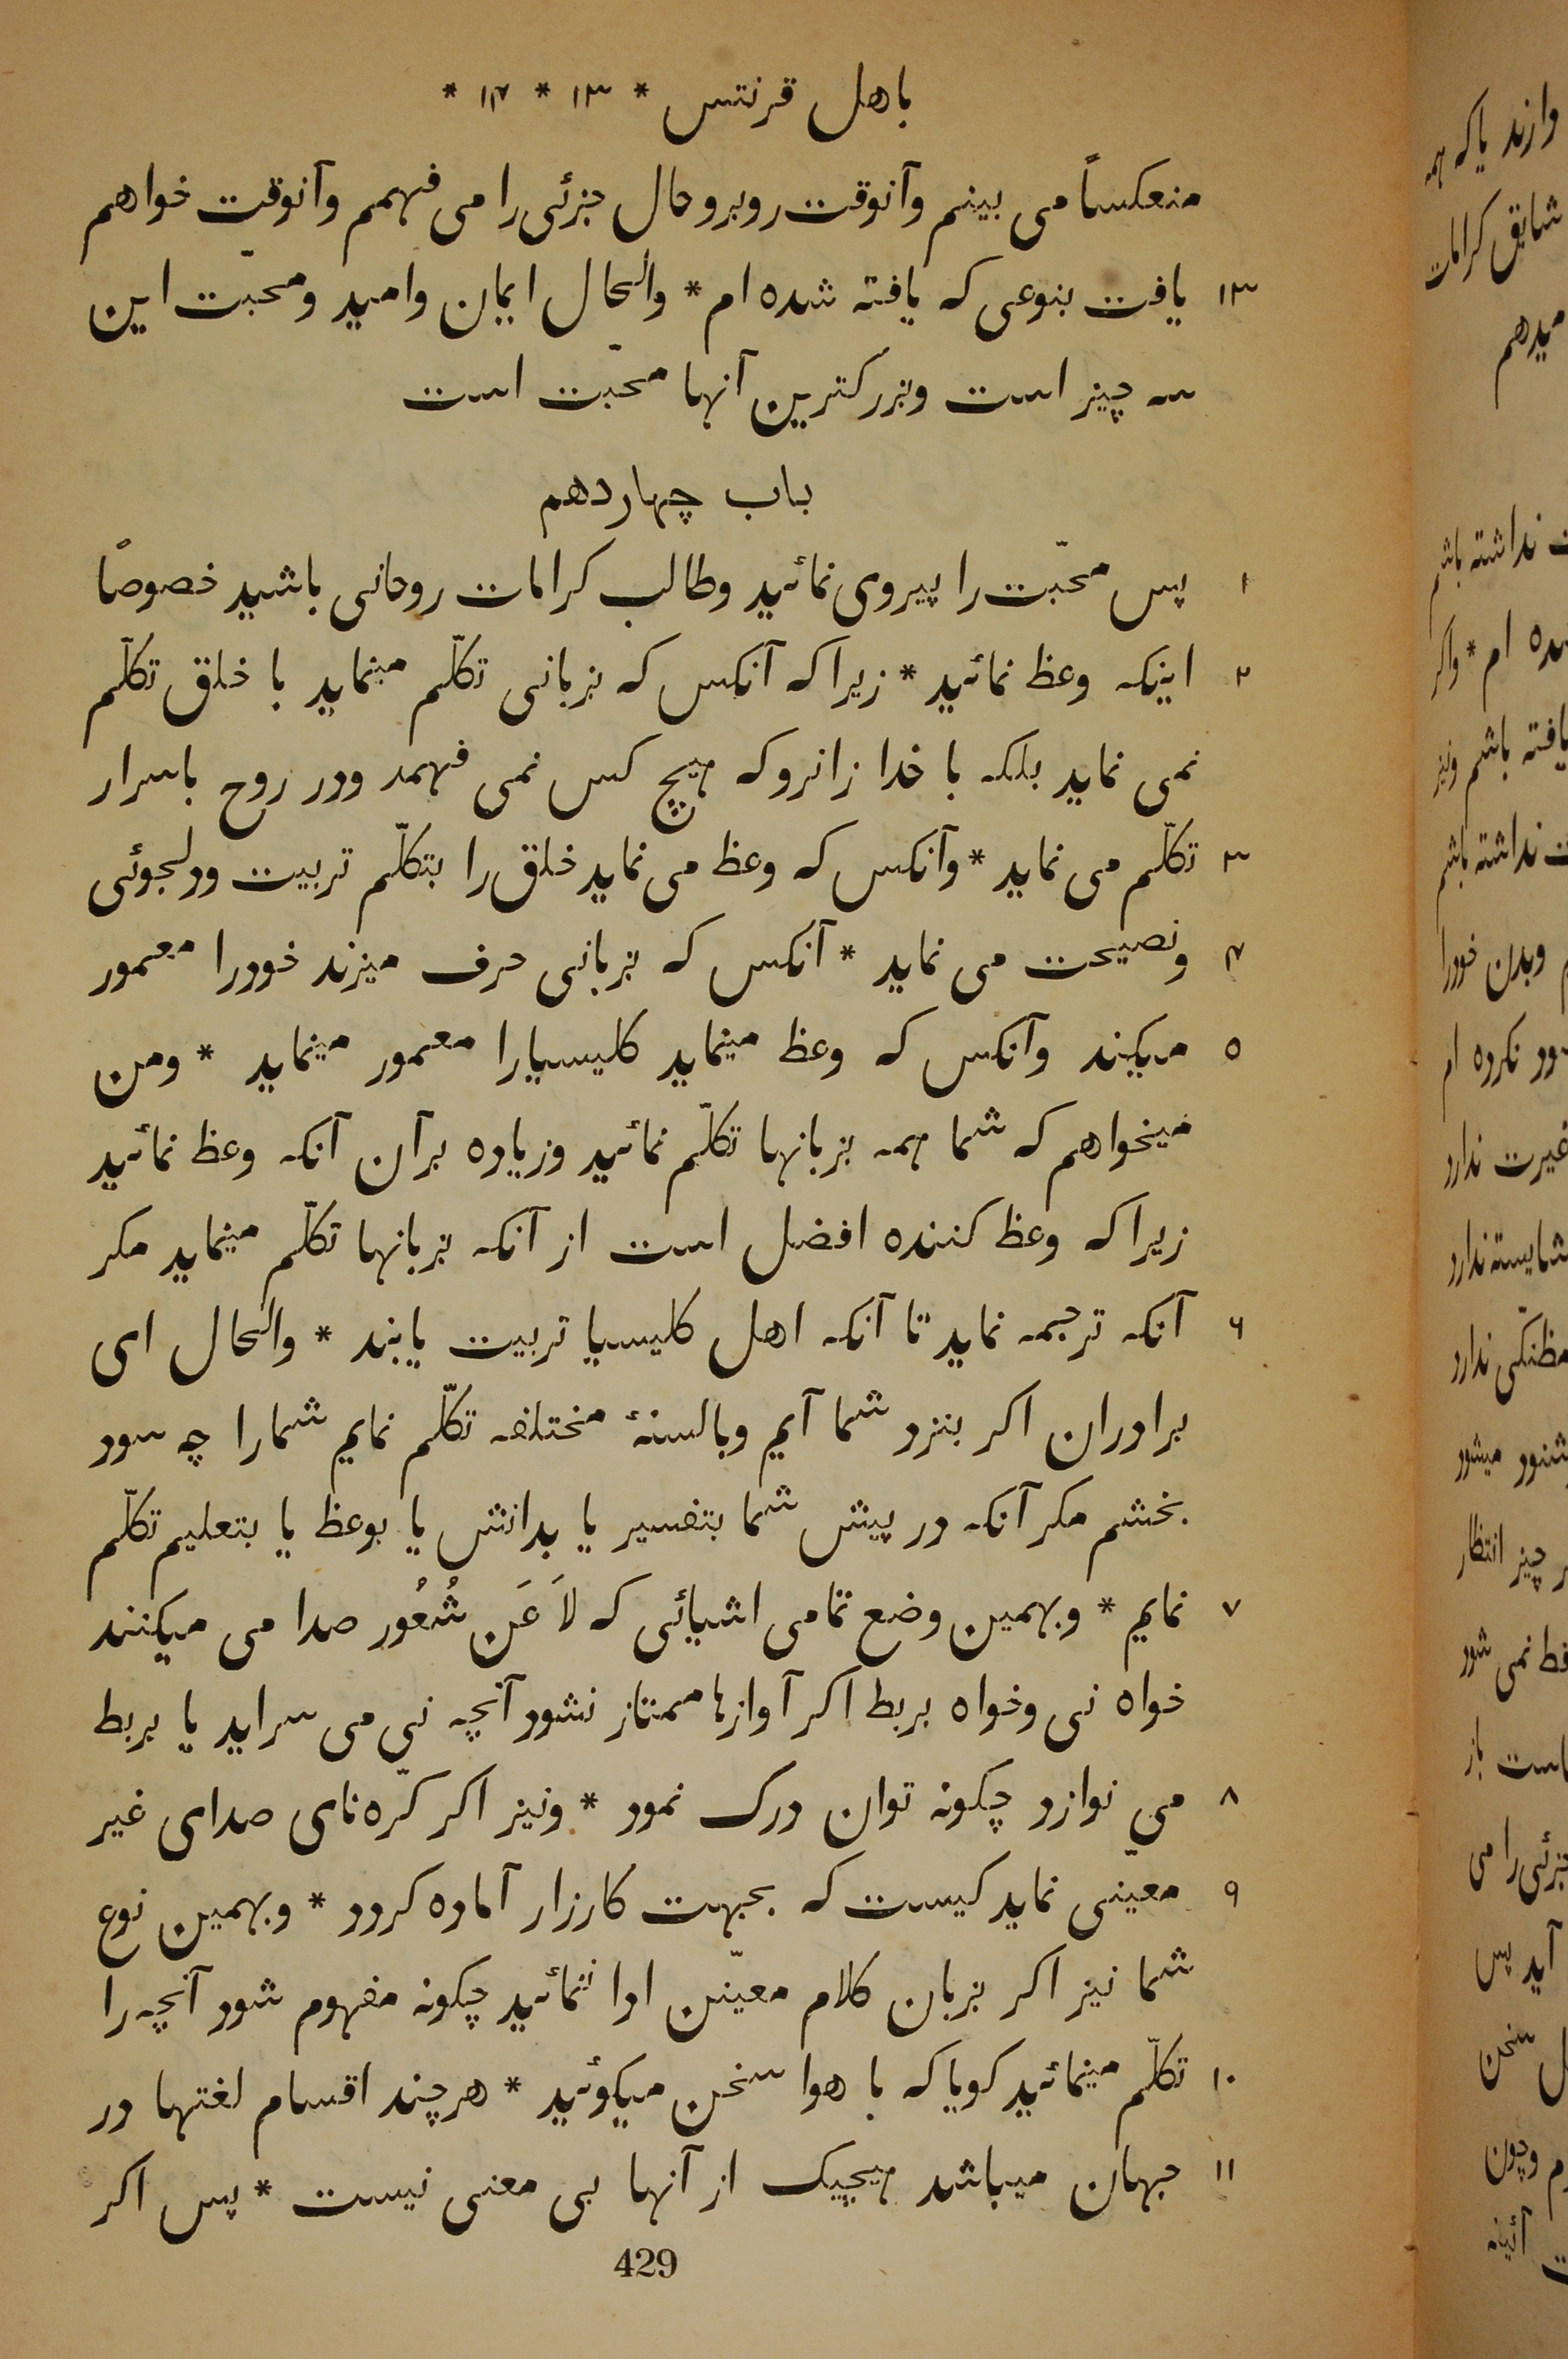 باهل قرنتس * ۱۳ * ۱۴ *
منعکساً می بینم وآنوقت روبرو حال جزئی را می فهمم وآنوقت خواهم
۱۳ یافت بنوعی که یافته شده ام * والحال ایمان وامید ومحبّت این
سه چیز است وبزرکترین آنها محبّت است
باب چهاردهم
۱ پس محبّت را پیروی نمائید وطالب کرامات روحانی باشید خصوصاً
۲ اینکه وعظ نمائید * زیرا که آنکس که بزبانی تکلّم مینماید با خلق تکلّم
نمی نماید بلکه با خدا زانرو که هیچ کس نمی فهمد ودر روح باسرار
۳ تکلّم می نماید * وآنکس که وعظ می نماید خلق را بتکلّم تربیت ودلجوئی
۴ ونصیحت می نماید * آنکس که بزبانی حرف میزند خودرا معمور
۵ میکند وآنکس که وعظ مینماید کلیسیارا معمور مینماید * ومن
میخواهم که شما همه بزبانها تکلّم نمائید وزیاده برآن آنکه وعظ نمائید
زیرا که وعظ کننده افضل است از آنکه بزبانها تکلّم مینماید مکر
۶ آنکه ترجمه نماید تا آنکه اهل کلیسیا تربیت یابند * والحال ای
برادران اکر بنزد شما آیم وبالسنهٔ مختلفه تکلّم نمایم شمارا چه سود
بخشم مکر آنکه در پیش شما بتفسیر یا بدانش یا بوعظ یا بتعلیم تکلّم
۷ نمایم * وبهمین وضع تمامی اشیائی که لاَ عَن شُعُور صدا می میکنند
خواه نی وخواه بربط اکر آوازها ممتاز نشود آنچه نی می سراید یا بربط
۸ می نوازد چکونه توان درک نمود * ونیز اکر کرّه نای صدای غیر
۹ معیّنی نماید کیست که بجهت کارزار آماده کردد * وبهمین نوع
شما نیز اکر بزبان کلام معیّن ادا ننمائید چکونه مفهوم شود آنچه را
۱۰ تکلّم مینمائید کویا که با هوا سخن میکوئید * هرچند اقسام لغتها در
۱۱ جهان میباشد هیچیک از آنها بی معنی نیست * پس اکر
429
وازند یا که همه
شایق کرامات
میدهم
نداشته باشم
ام * واکر
یافته باشم ونیز
نداشته باشم
وبدن خودرا
نکرده ام
غیرت ندارد
شایسته ندارد
ندارد
میشود
چیز انتظار
نمی شود
است باز
جزئی را می
آید پس
سخن
وچون
آئینه